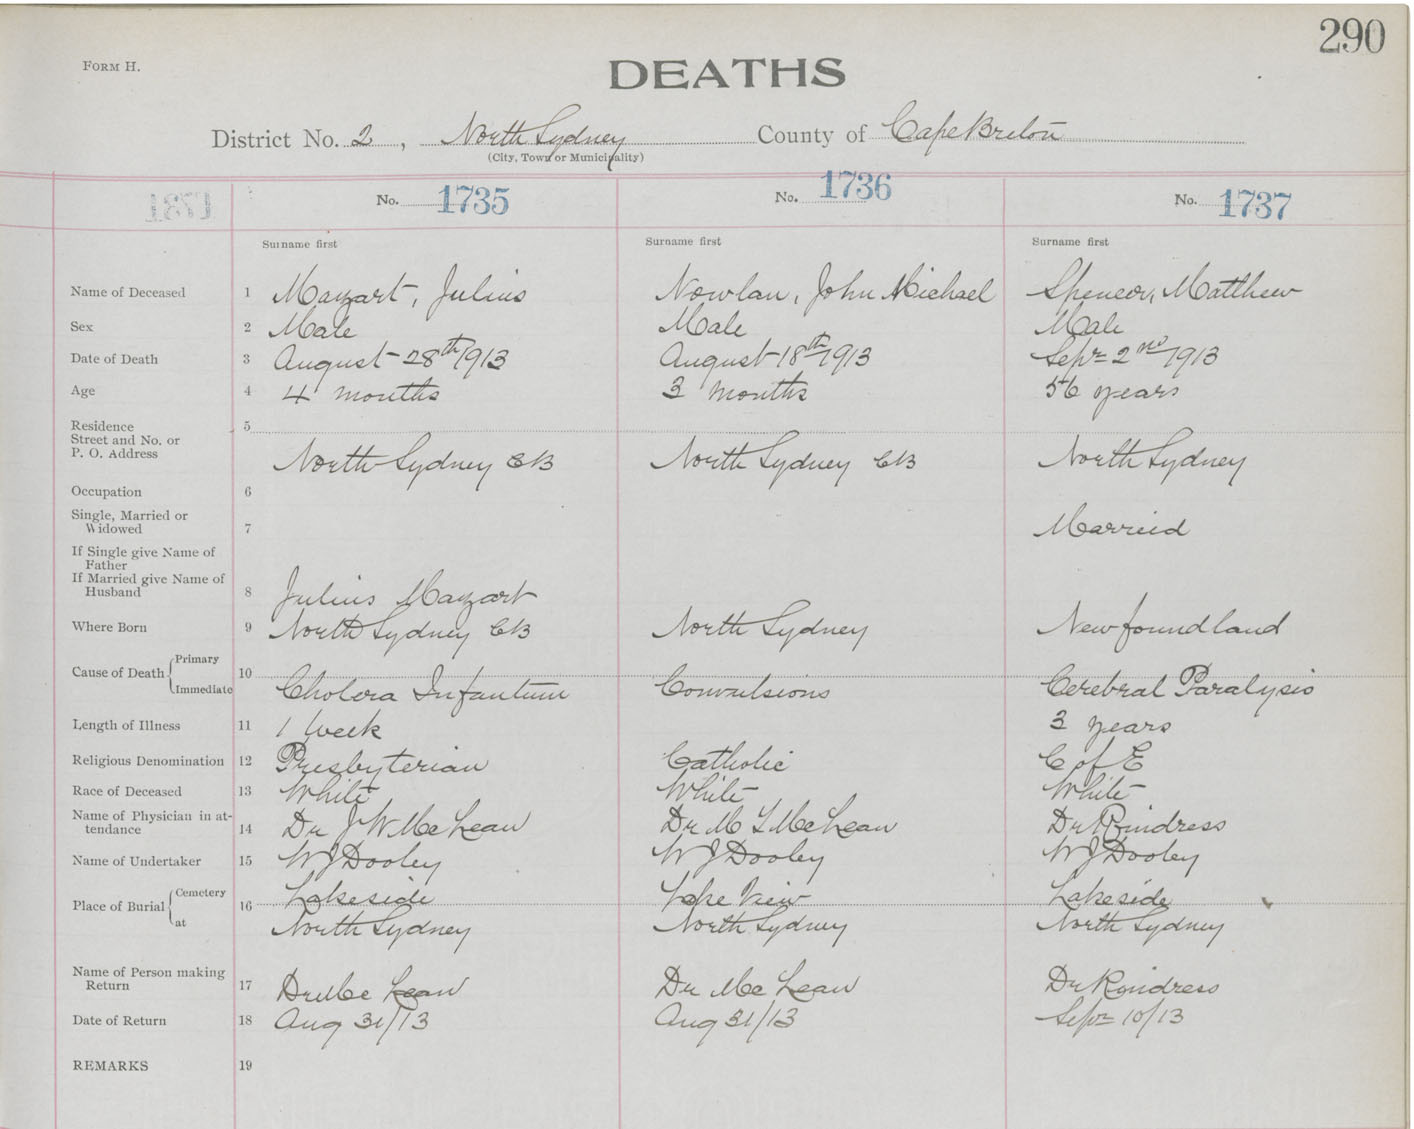 290
FORM H.
DEATHS
District No. 2, North Sydney County of Cape Breton
(City, Town or Municipality)
1731 No. 1735 No. 1736 No. 1737
Surname first Surname first Surname first
Name of Deceased 1 Mayzart, Julius Nowlan, John Michael Spencer, Matthew
Sex 2 Male Male Male
Date of Death 3 August 28th 1913 August 18th 1913 Sept 2nd 1913
Age 4 4 months 3 months 56 years
Residence 5
Street and No. or
P. O. Address North Sydney CB North Sydney CB North Sydney
Occupation 6
Single, Married or
Widowed 7 Married
If Single give Name of
Father
If Married give Name of
Husband 8 Julius Mayzart
Where Born 9 North Sydney CB North Sydney Newfoundland
Cause of Death Primary 10
Immediate Cholera Infantum Convulsions Cerebral Paralysis
Length of Illness 11 1 week 3 years
Religious Denomination 12 Presbyterian Catholic C of E
Race of Deceased 13 White White White
Name of Physician in at-
tendance 14 Dr J W McLean Dr M T McLean Dr Rindress
Name of Undertaker 15 W J Dooley W J Dooley W J Dooley
Place of Burial Cemetery 16 Lakeside Lake View Lakeside
at North Sydney North Sydney North Sydney
Name of Person making
Return 17 Dr McLean Dr McLean Dr Rindress
Date of Return 18 Aug 31/13 Aug 31/13 Sept 10/13
REMARKS 19